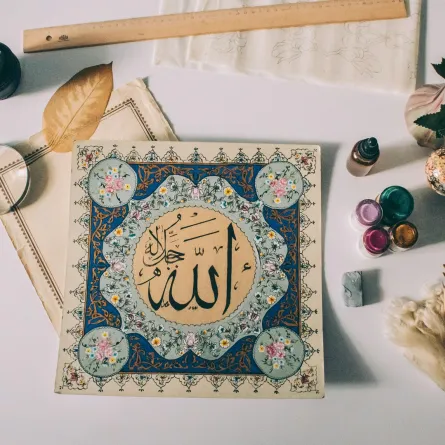 الله جل جلاله